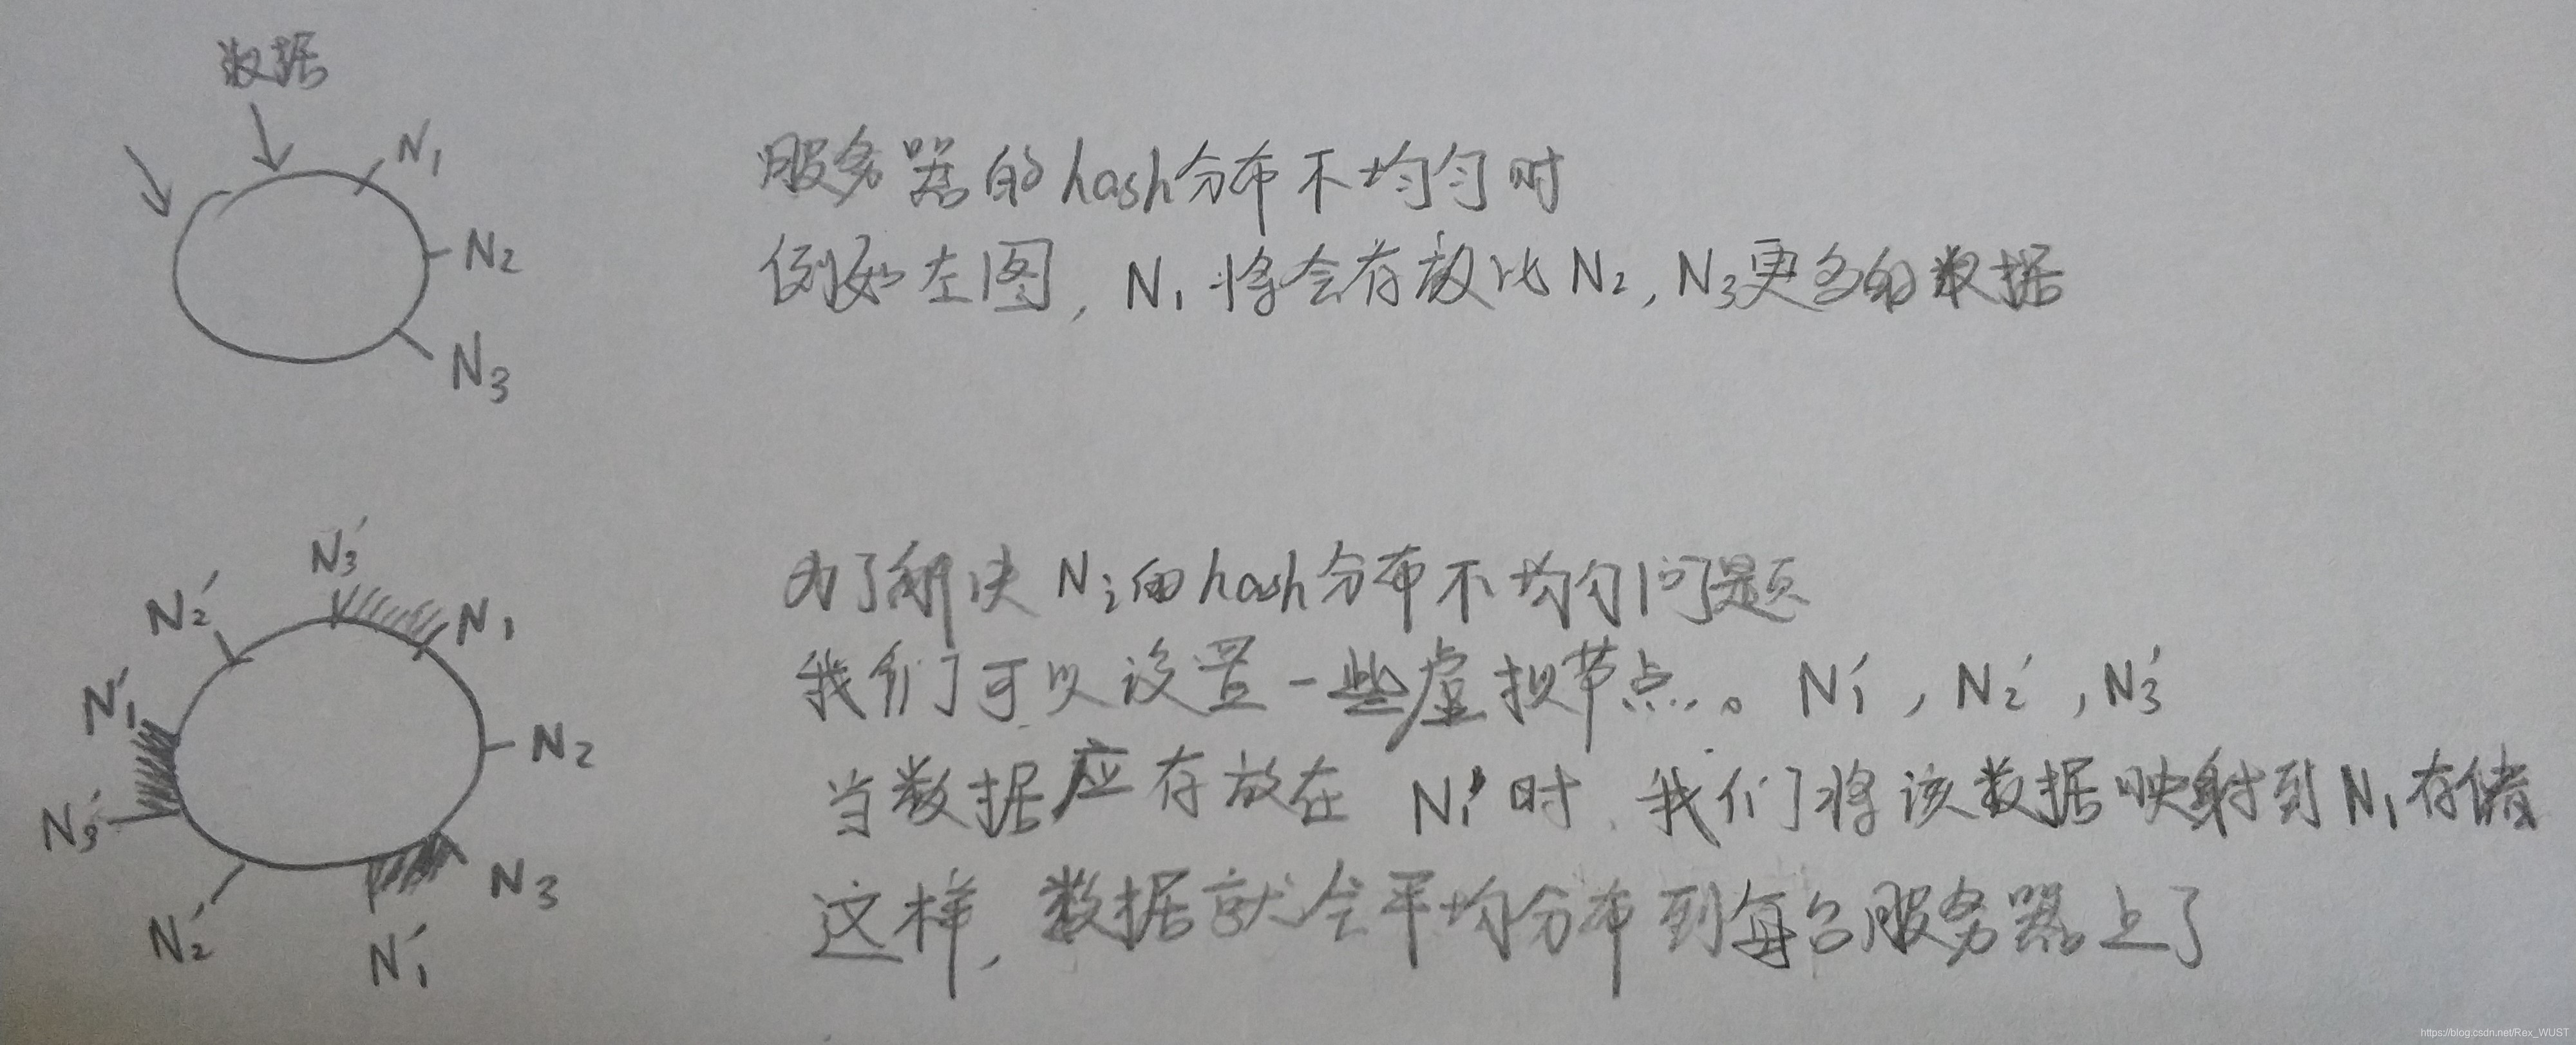 数据
N₁
N₂
N₃
服务器的hash分布不均匀时
例如左图, N₁将会存放比N₂, N₃更多的数据
N₃′
N₂′
N₁
N₁′
N₂
N₃′
N₃
N₂′
N₁′
为了解决Nᵢ的hash分布不均匀问题
我们可以设置一些虚拟节点...。N₁′, N₂′, N₃′
当数据应存放在N₁′时, 我们将该数据映射到N₁存储
这样, 数据就会平均分布到每台服务器上了
https://blog.csdn.net/Rex_WUST